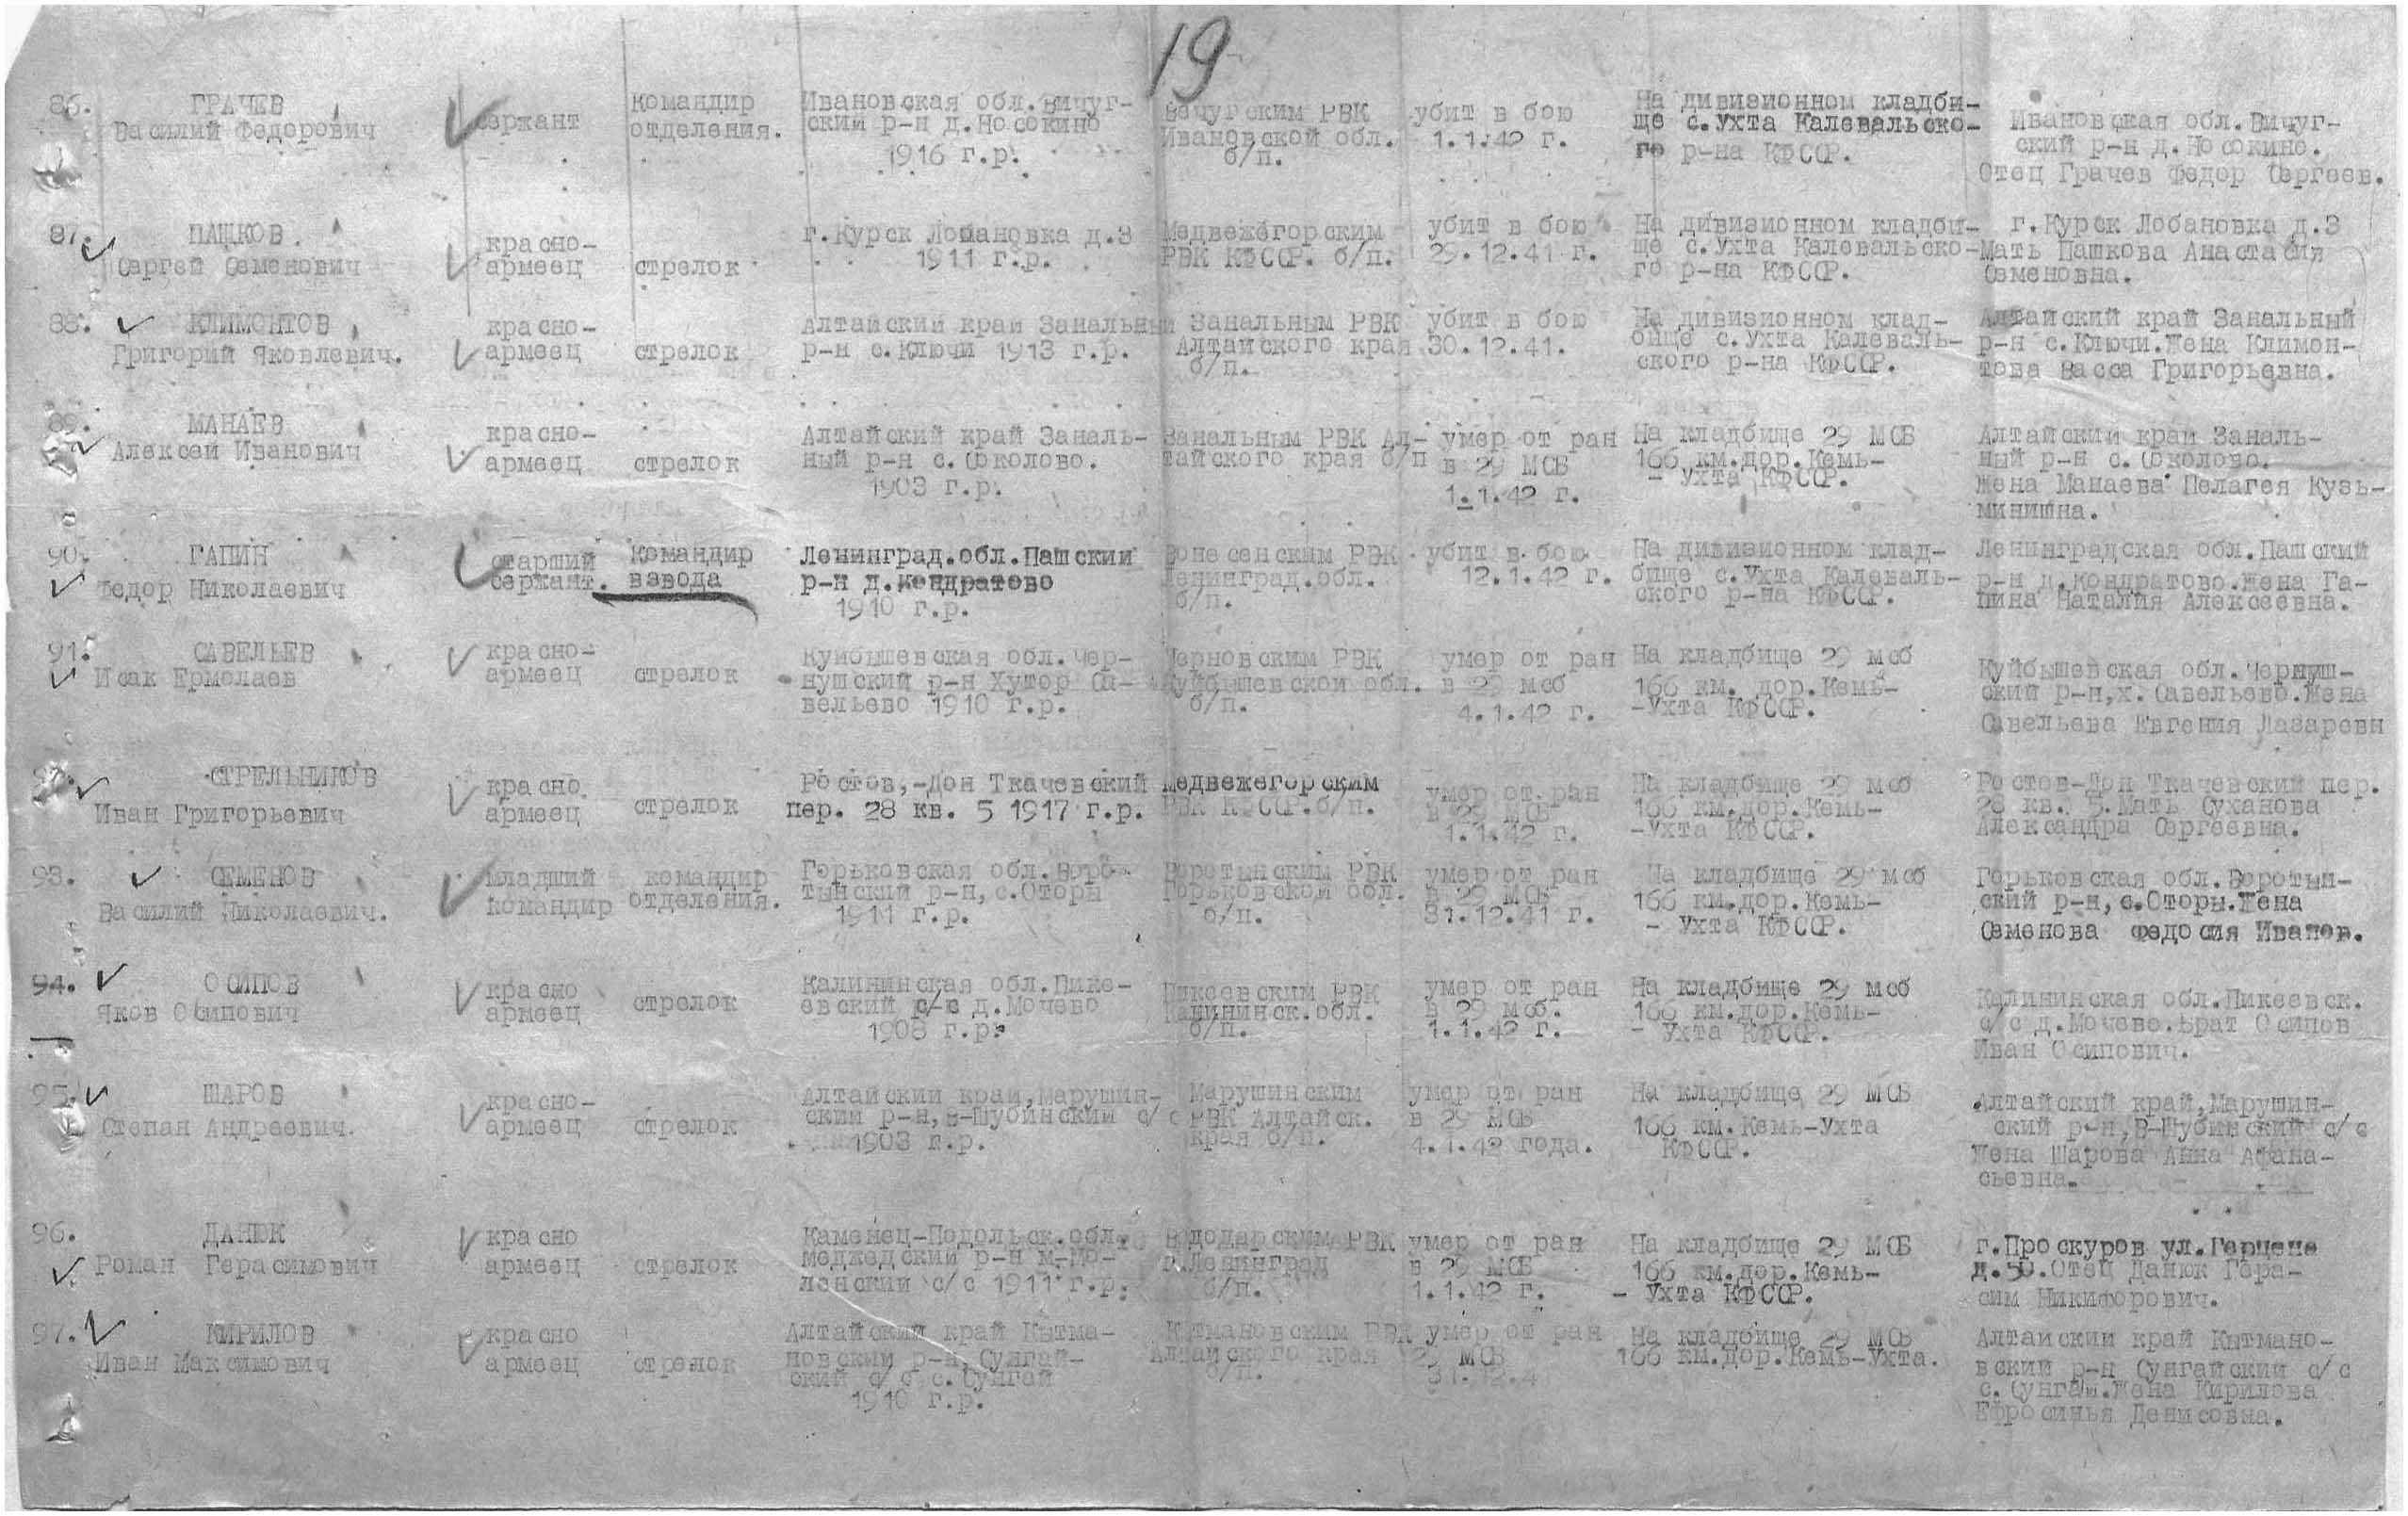 19
86. ГРАЧЕВ
Василий Федорович
сержант
Командир
отделения.
Ивановская обл. Вичуг-
ский р-н д. Носокино
1916 г.р.
Вечугским РВК
Ивановской обл.
б/п.
убит в бою
1.1.42 г.
На дивизионном кладби-
ще с.Ухта Калевальско-
го р-на КФССР.
Ивановская обл.Вичуг-
ский р-н д.Носокино.
Отец Грачев Федор Сергеев.
87. ПАШКОВ.
Сергей Семенович
красно-
армеец
стрелок
г.Курск Лобановка д.3
1911 г.р.
Медвежегорским
РВК КФССР. б/п.
убит в бою
29.12.41 г.
На дивизионном кладби-
ще с.Ухта Калевальско-
го р-на КФССР.
г.Курск Лобановка д.3
Мать Пашкова Анастасия
Семеновна.
88. КЛИМОНТОВ
Григорий Яковлевич.
красно-
армеец
стрелок
Алтайский край Занальный
р-н с.Ключи 1913 г.р.
Занальным РВК
Алтайского края
б/п.
убит в бою
30.12.41.
На дивизионном клад-
бище с.Ухта Калеваль-
ского р-на КФССР.
Алтайский край Занальный
р-н с.Ключи.Жена Климон-
това Васса Григорьевна.
89. МАНАЕВ
Алексей Иванович
красно-
армеец
стрелок
Алтайский край Заналь-
ный р-н с.Соколово.
1903 г.р.
Занальным РВК Ал-
тайского края б/п
умер от ран
в 29 МСБ
1.1.42 г.
На кладбище 29 МСБ
166 км.дор.Кемь-
- Ухта КФССР.
Алтайский край Заналь-
ный р-н с.Соколово.
Жена Манаева Пелагея Кузь-
минишна.
90. ГАПИН
Федор Николаевич
старший
сержант.
Командир
взвода
Ленинград.обл.Пашский
р-н д.Кондратово
1910 г.р.
Вонесенским РВК
Ленинград.обл.
б/п.
убит в бою
12.1.42 г.
На дивизионном клад-
бище с.Ухта Калеваль-
ского р-на КФССР.
Ленинградская обл.Пашский
р-н д.Кондратово.Жена Га-
пина Наталия Алексеевна.
91. САВЕЛЬЕВ
Исак Ермолаев
красно-
армеец
стрелок
Куйбышевская обл.Чер-
нушский р-н Хутор Са-
вельево 1910 г.р.
Черновским РВК
Куйбышевской обл.
б/п.
умер от ран
в 29 мсб
4.1.42 г.
На кладбище 29 мсб
166 км. дор.Кемь-
-Ухта КФССР.
Куйбышевская обл.Чернуш-
ский р-н,х.Савельево.Жена
Савельева Евгения Лазаревн
92. СТРЕЛЬНИКОВ
Иван Григорьевич
красно.
армеец
стрелок
Ростов,-Дон Ткачевский
пер. 28 кв. 5 1917 г.р.
Медвежегорским
РВК КФССР.б/п.
умер от ран
в 29 МСБ
1.1.42 г.
На кладбище 29 мсб
166 км.дор.Кемь-
-Ухта КФССР.
Ростов-Дон Ткачевский пер.
28 кв. 5.Мать Суханова
Александра Сергеевна.
93. СЕМЕНОВ
Василий Николаевич.
младший
командир
командир
отделения.
Горьковская обл.Воро-
тынский р-н,с.Оторы
1911 г.р.
Воротынским РВК
Горьковской обл.
б/п.
умер от ран
в 29 МСБ
31.12.41 г.
На кладбище 29 мсб
166 км.дор.Кемь-
- Ухта КФССР.
Горьковская обл.Воротын-
ский р-н,с.Оторы.Жена
Семенова Федосия Иванов.
94. ОСИПОВ
Яков Осипович
красно
армеец
стрелок
Калининская обл.Пике-
евский с/с д.Мочево
1908 г.р.
Пикеевским РВК
Калининск.обл.
б/п.
умер от ран
в 29 мсб.
1.1.42 г.
На кладбище 29 мсб
166 км.дор.Кемь-
- Ухта КФССР.
Калининская обл.Пикеевск.
с/с д.Мочево.Брат Осипов
Иван Осипович.
95. ШАРОВ
Степан Андреевич.
красно-
армеец
стрелок
Алтайский край,Марушин-
ский р-н,В-Шубинский с/с
1903 г.р.
Марушинским
РВК Алтайск.
края б/п.
умер от ран
в 29 МСБ
4.1.42 года.
На кладбище 29 МСБ
166 км.Кемь-Ухта
КФССР.
Алтайский край,Марушин-
ский р-н,В-Шубинский с/с
Жена Шарова Анна Афана-
сьевна.
96. ДАНЮК
Роман Герасимович
красно
армеец
стрелок
Каменец-Подольск.обл.
Меджедский р-н м-Мо-
ленский с/с 1911 г.р.
РВК
г.Ленинград
б/п.
умер от ран
в 29 МСБ
1.1.42 г.
На кладбище 29 МСБ
166 км.дор.Кемь-
- Ухта КФССР.
г.Проскуров ул.Герцена
д.50.Отец Данюк Гера-
сим Никифорович.
97. КИРИЛОВ
Иван Максимович
красно
армеец
стрелок
Алтайский край Кытма-
новский р-н,Сунгай-
ский с/с с.Сунгай
1910 г.р.
Кытмановским РВК
Алтайского края
б/п.
умер от ран
29 МСБ
31.12.4
На кладбище 29 МСБ
166 км.дор.Кемь-Ухта.
Алтайский край Кытмано-
вский р-н Сунгайский с/с
с.Сунгай.Жена Кирилова
Ефросинья Денисовна.